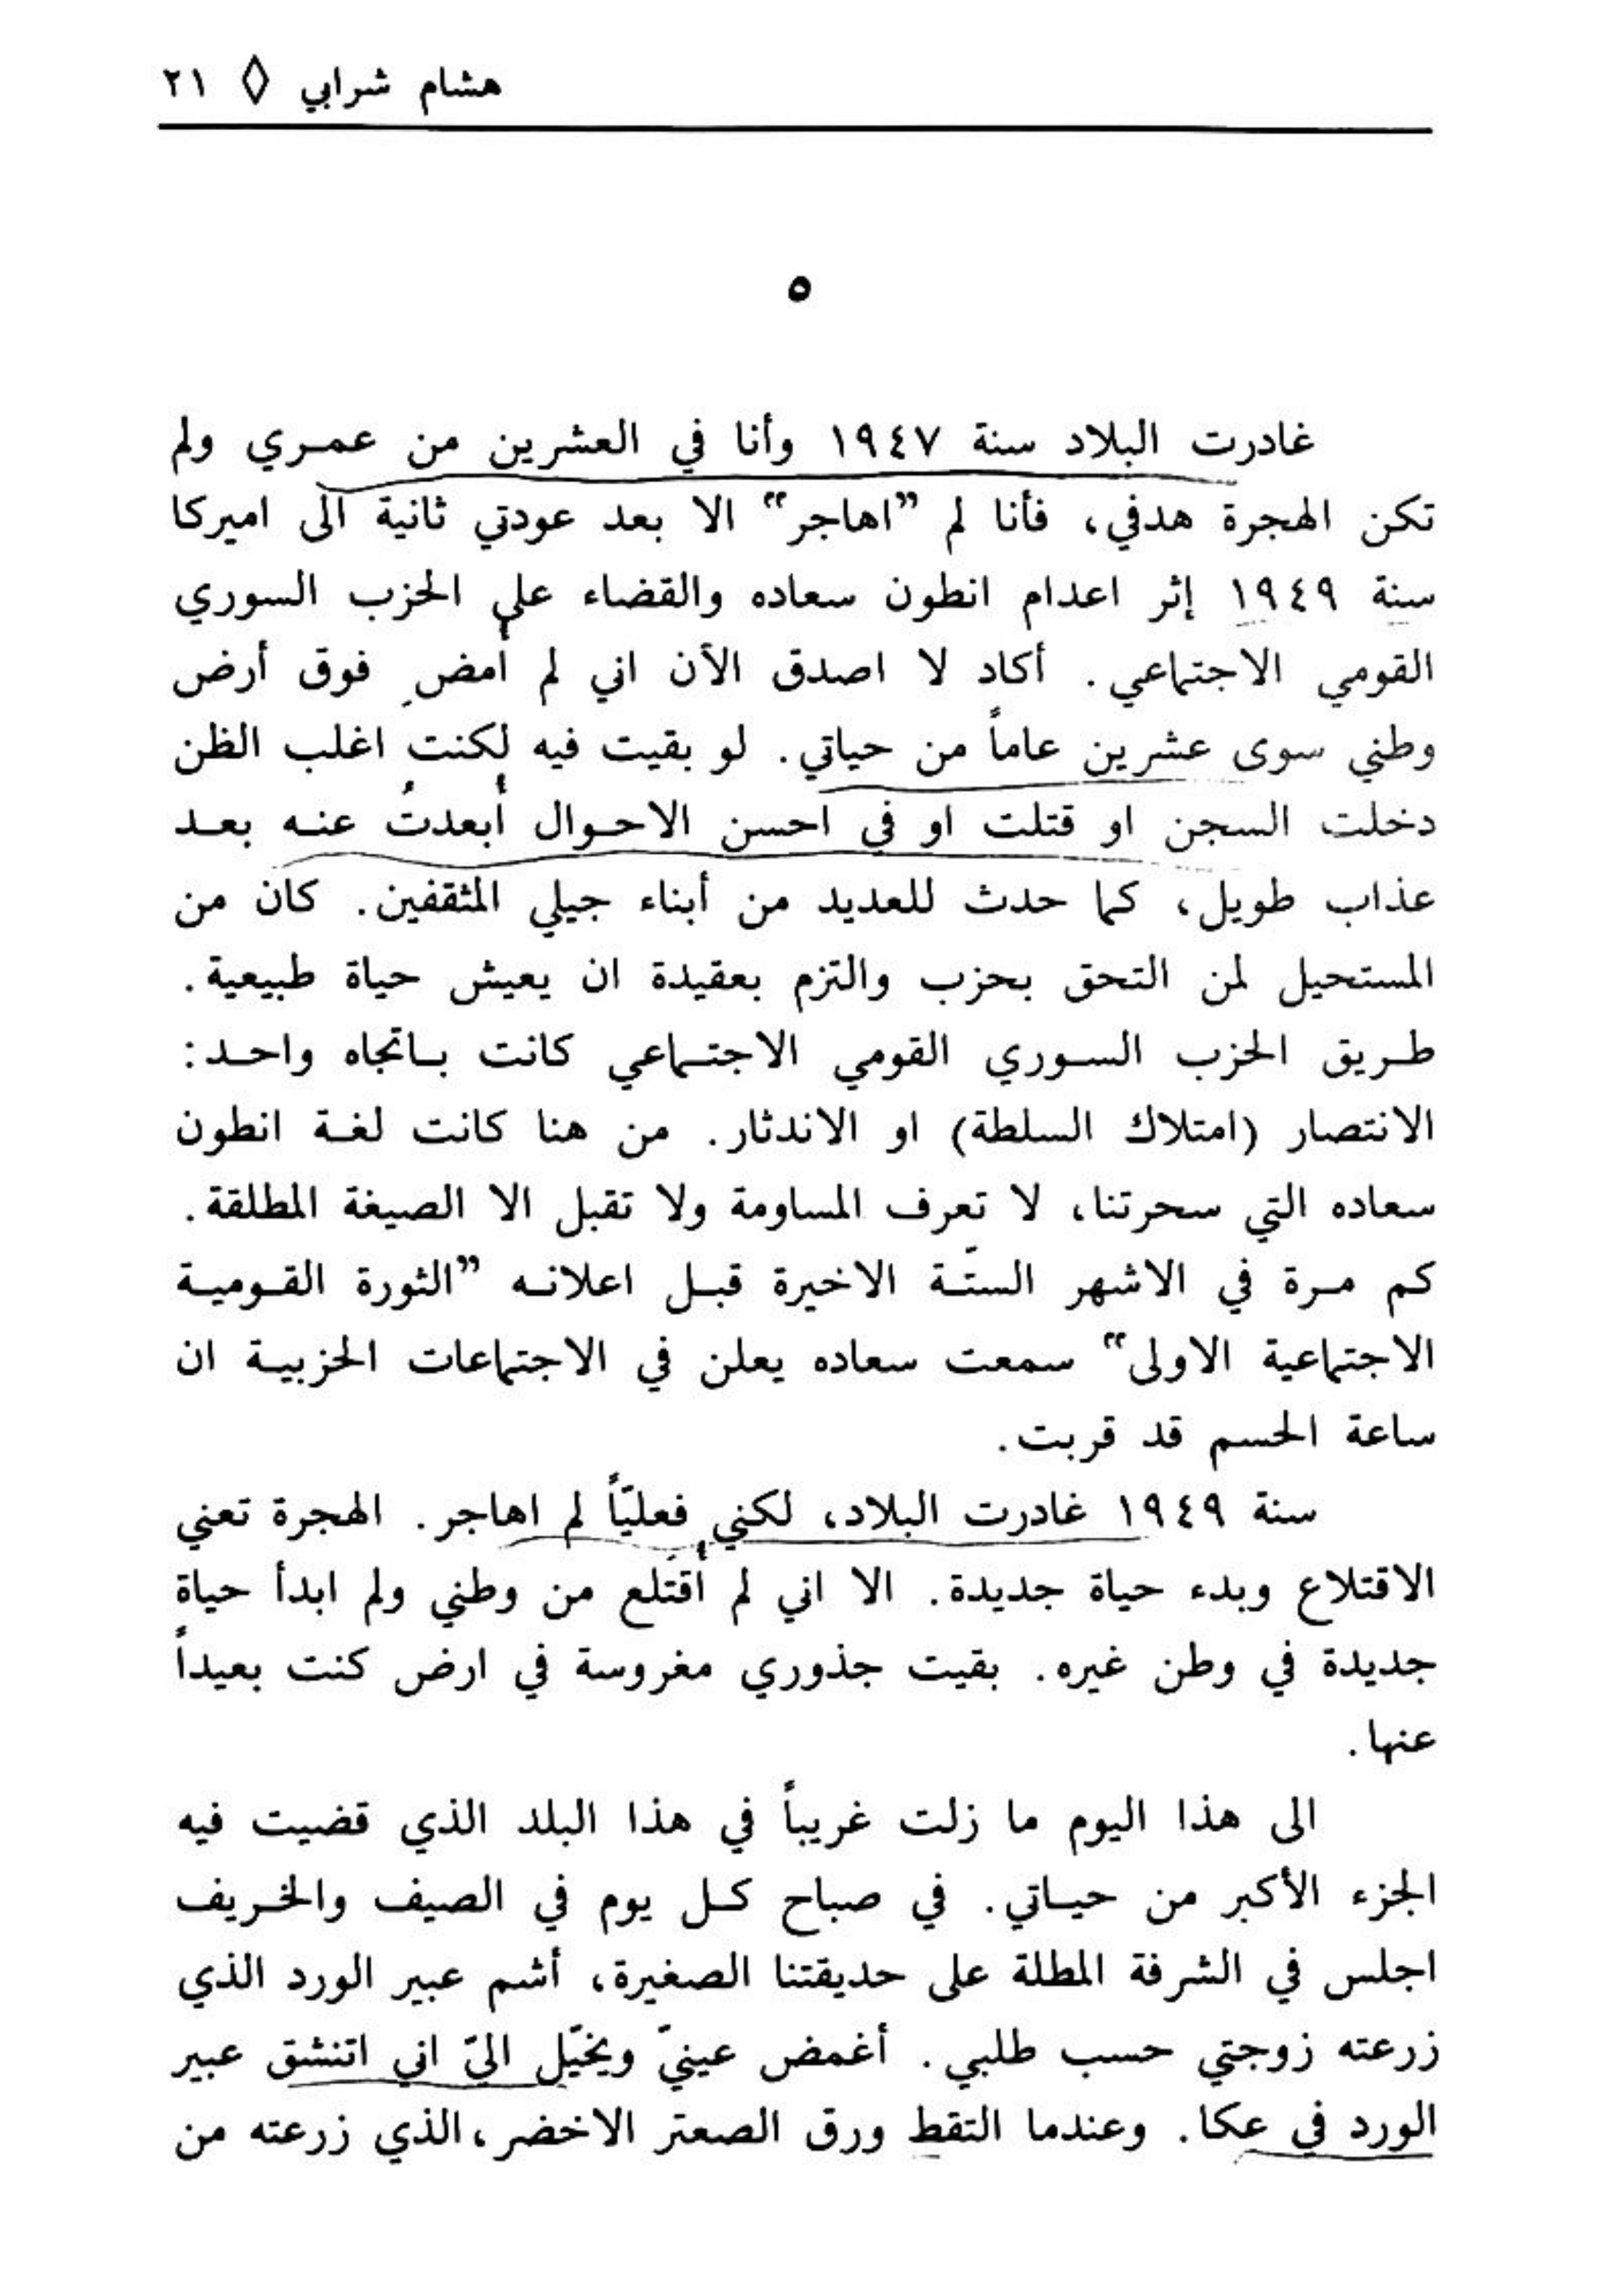 هشام شرابي ◊ ٢١
٥
غادرت البلاد سنة ١٩٤٧ وأنا في العشرين من عمري ولم
تكن الهجرة هدفي، فأنا لم ”اهاجر“ الا بعد عودتي ثانية الى اميركا
سنة ١٩٤٩ إثر اعدام انطون سعاده والقضاء على الحزب السوري
القومي الاجتماعي. أكاد لا اصدق الأن اني لم أمضِ فوق أرض
وطني سوى عشرين عاماً من حياتي. لو بقيت فيه لكنت اغلب الظن
دخلت السجن او قتلت او في احسن الاحوال أبعدتُ عنه بعد
عذاب طويل، كما حدث للعديد من أبناء جيلي المثقفين. كان من
المستحيل لمن التحق بحزب والتزم بعقيدة ان يعيش حياة طبيعية.
طريق الحزب السوري القومي الاجتماعي كانت باتجاه واحد:
الانتصار (امتلاك السلطة) او الاندثار. من هنا كانت لغة انطون
سعاده التي سحرتنا، لا تعرف المساومة ولا تقبل الا الصيغة المطلقة.
كم مرة في الاشهر الستّة الاخيرة قبل اعلانه ”الثورة القومية
الاجتماعية الاولى“ سمعت سعاده يعلن في الاجتماعات الحزبية ان
ساعة الحسم قد قربت.
سنة ١٩٤٩ غادرت البلاد، لكني فعليّاً لم اهاجر. الهجرة تعني
الاقتلاع وبدء حياة جديدة. الا اني لم أقتَلع من وطني ولم ابدأ حياة
جديدة في وطن غيره. بقيت جذوري مغروسة في ارض كنت بعيداً
عنها.
الى هذا اليوم ما زلت غريباً في هذا البلد الذي قضيت فيه
الجزء الأكبر من حياتي. في صباح كل يوم في الصيف والخريف
اجلس في الشرفة المطلة على حديقتنا الصغيرة، أشم عبير الورد الذي
زرعته زوجتي حسب طلبي. أغمض عينيّ ويخيّل اليّ اني اتنشق عبير
الورد في عكا. وعندما التقط ورق الصعتر الاخضر، الذي زرعته من